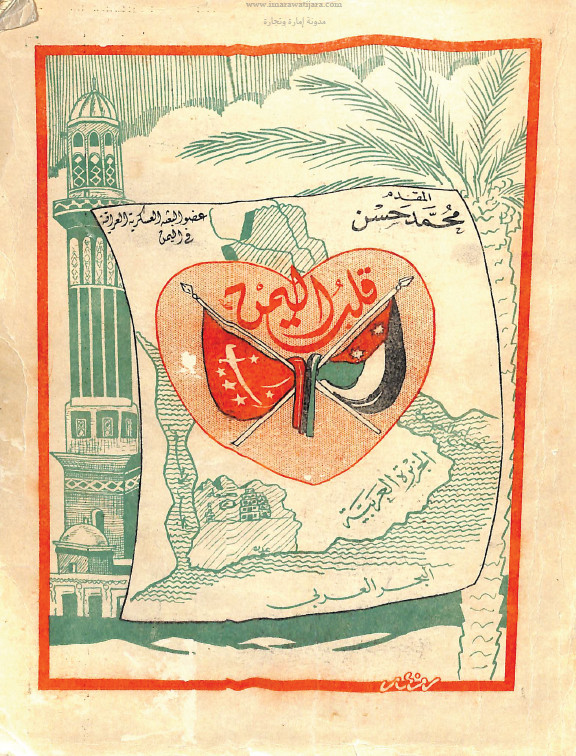 www.imarawatijara.com
مدونة إمارة وتجارة
المقدم
محمد حسن
عضو البعثة العسكرية العراقية
في اليمن
قلب اليمن
الجزيرة العربية
عدن
البحر العربي